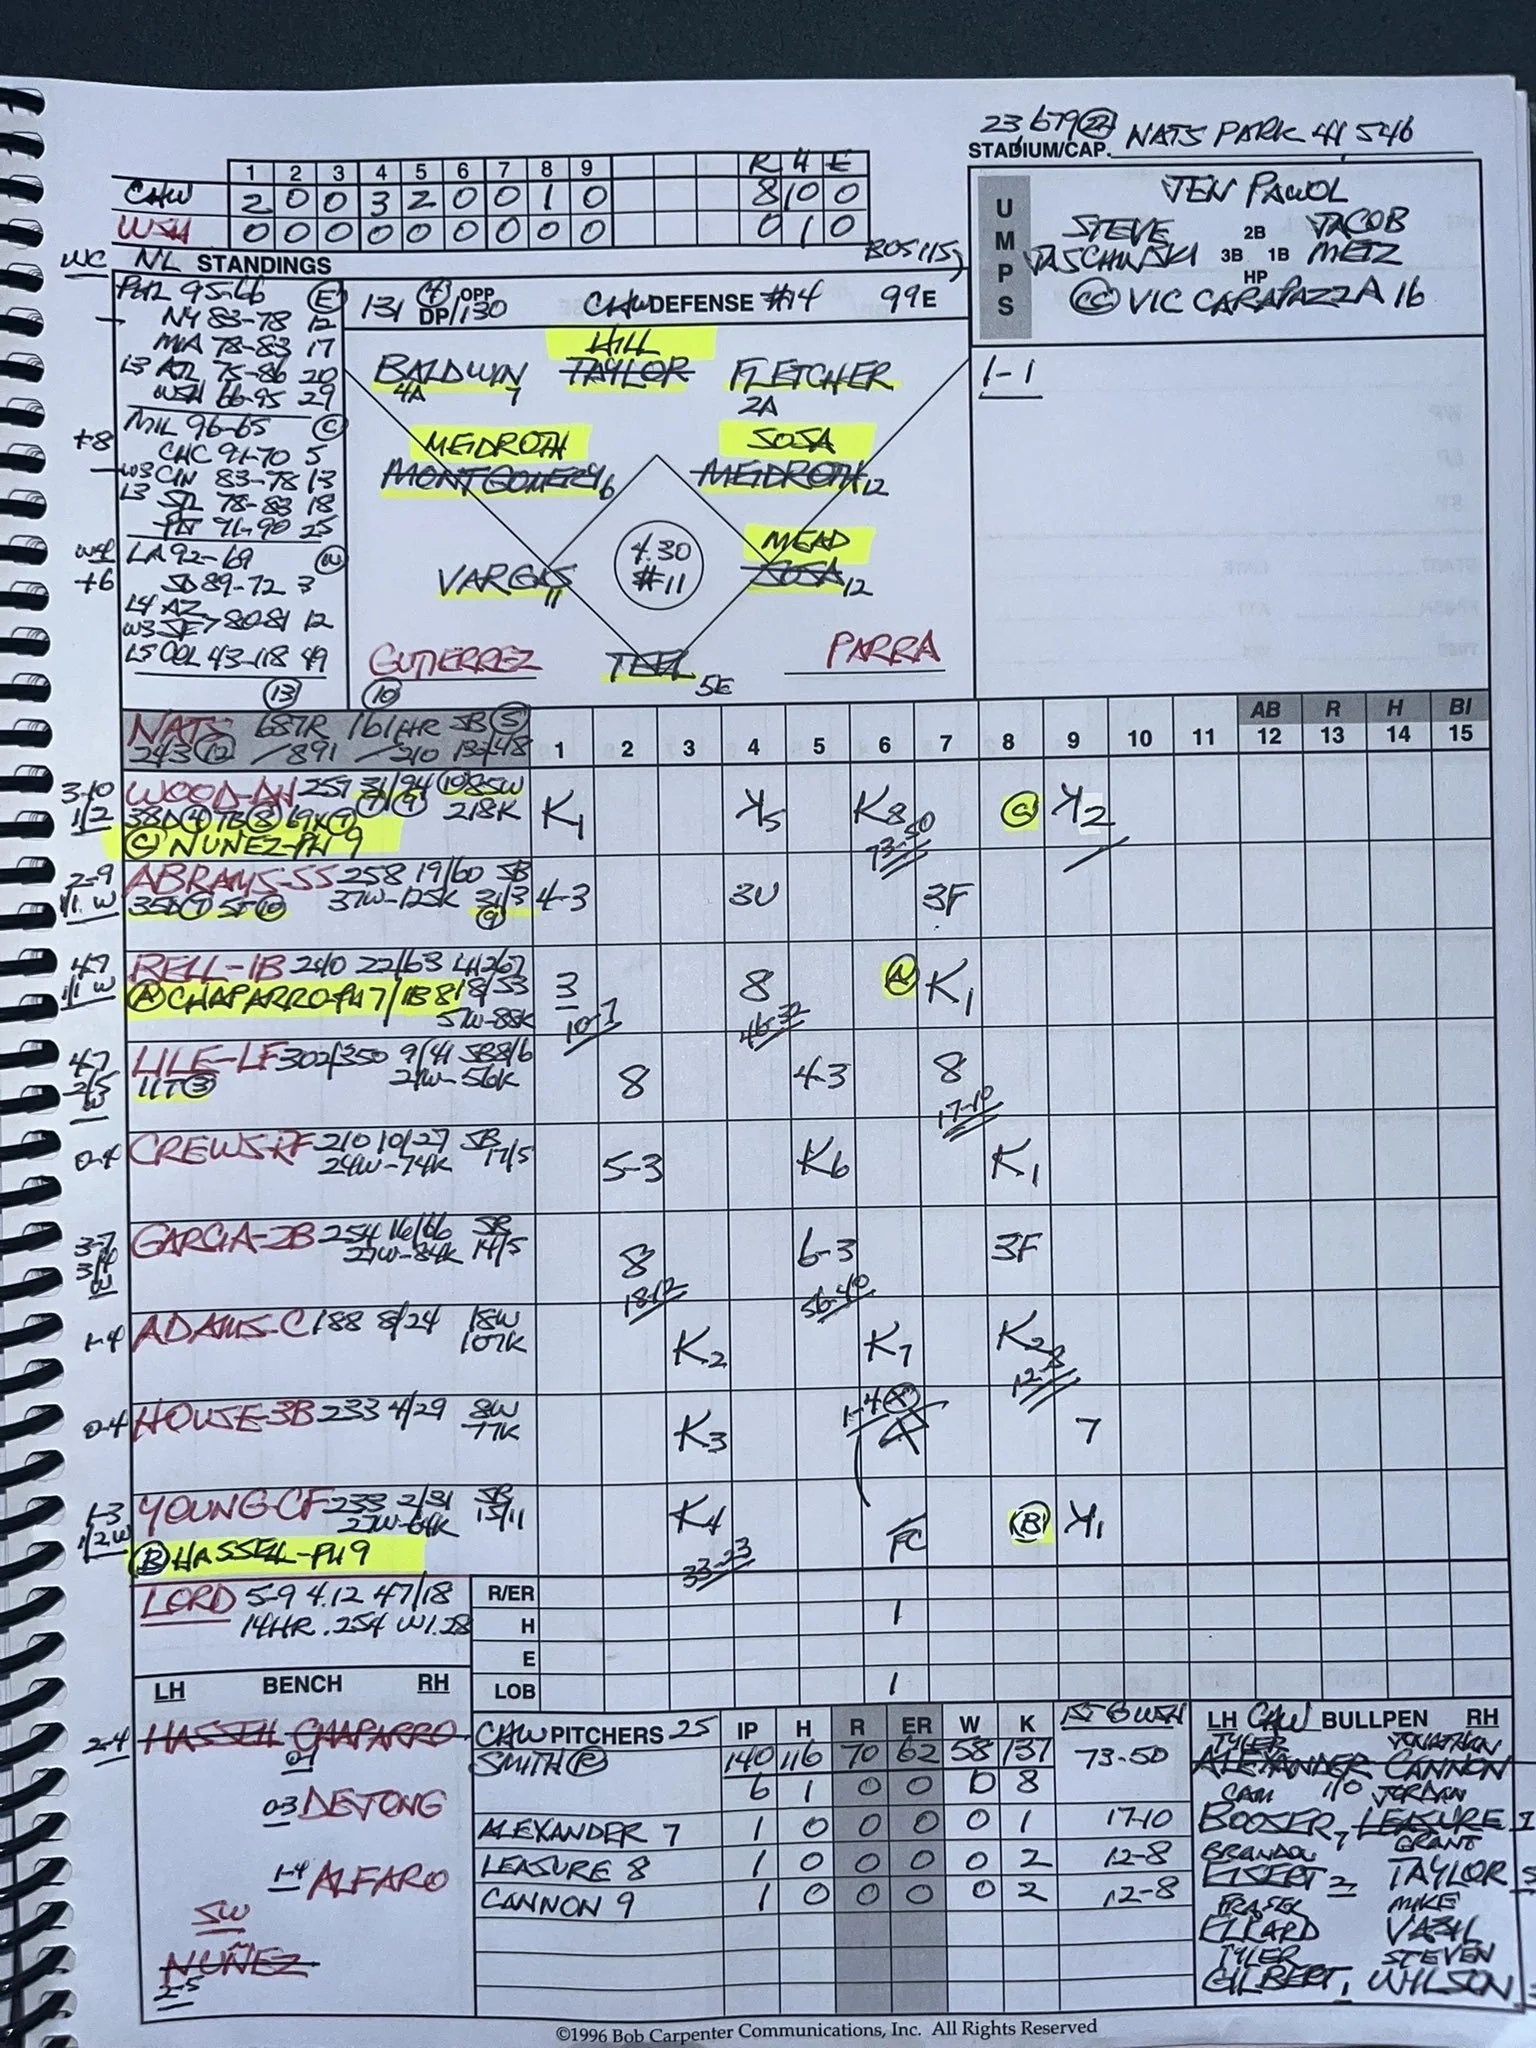 23,679 (22) NATS PARK 41,546
STADIUM/CAP.
1 2 3 4 5 6 7 8 9 R H E
CHW 2 0 0 3 2 0 0 1 0 8 10 0
WSH 0 0 0 0 0 0 0 0 0 0 1 0
UMPS
JEN PAWOL
STEVE 2B JACOB
JASCHINSKI 3B 1B METZ
HP
CC VIC CARAPAZZA 16
WC NL STANDINGS
BOS 115
PHL 95-66 E
NY 83-78 12
MIA 78-83 17
L3 ATL 75-86 20
WSH 66-95 29
MIL 96-65 C
+8 CHC 91-70 5
W3 CIN 83-78 13
L3 STL 78-83 18
PIT 71-90 25
W4 LA 92-69 W
+6 SD 89-72 3
L4 AZ
W3 SF > 80-81 12
L5 COL 43-118 49
131 (4) OPP DP/130 CHW DEFENSE #14 99E
HILL
BALDWIN TAYLOR FLETCHER
4A 7 2A
MEIDROTH SOSA
MONTGOMERY 6 MEIDROTH 12
4.30 MEAD
VARGAS 11 #11 SOSA 12
GUTIERREZ TEEL 5E PARRA
1-1
(13) (10)
NATS 687R 161HR SB (5)
243 (12) /891 /210 137/48
1 2 3 4 5 6 7 8 9 10 11 12 13 14 15
AB R H BI
3-10 WOOD-DH 257 31/94
1/2 218K
(C) NUNEZ-PH 9
K1 K5 K8 73-50 (C) K2
2-9 ABRAMS-SS 258 19/60 SB
1/1 W 37W-125K 31/3
4-3 3U 3F
4-7 BELL-1B 240 22/63
1/1 W (A) CHAPARRO-PH 7/1B 8
57W-88K
3 10-7 8 46-32 (A) K1
4-7 LILE-LF 302/350 9/41 SB 8/6
2/5 W 11T (3) 21W-56K
8 4-3 8 17-10
0-4 CREWS-RF 210 10/27 SB
24W-74K 17/5
5-3 K6 K1
3-7 GARCIA-2B 254 16/66 SB
3/4 W 27W-84K 14/5
8 18-12 6-3 56-40 3F
1-4 ADAMS-C 188 8/24 18W
107K
K2 K7 K2 12-8
0-4 HOUSE-3B 233 4/29 8W
77K
K3 1-4 7
1-3 YOUNG-CF 233 2/31 SB
1/2 W 27W-64K 15/11
(B) HASSELL-PH 9
K4 33-23 FC (B) K1
LORD 5-9 4.12 47/18
14HR .254 W1.28
R/ER
H 1
E
LOB 1
LH BENCH RH
2-4 HASSELL CHAPARRO
0-1
0-3 DEJONG
1-4 ALFARO
SW
NUÑEZ
2-5
CHW PITCHERS 25 IP H R ER W K
SMITH (R) 140 116 70 62 58 137 73-50
6 1 0 0 0 8
ALEXANDER 7 1 0 0 0 0 1 17-10
LEASURE 8 1 0 0 0 0 2 12-8
CANNON 9 1 0 0 0 0 2 12-8
LH CHW BULLPEN RH
TYLER JONATHAN
ALEXANDER CANNON
CAM 110 JORDAN
BOOSER 7 LEASURE 7
BRANDON GRANT
EISERT 2 TAYLOR
FRASER MIKE
ELLARD VASIL
TYLER STEVEN
GILBERT 1 WILSON
©1996 Bob Carpenter Communications, Inc. All Rights Reserved